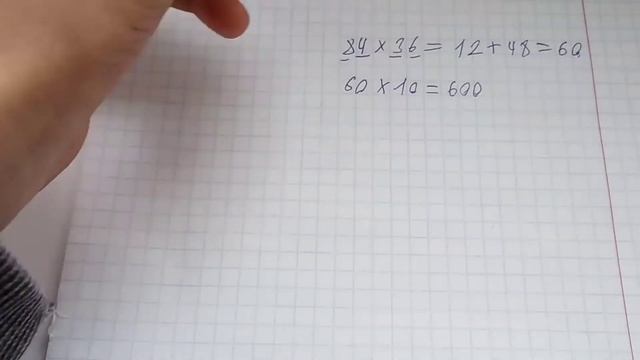 84 × 36 = 12 + 48 = 60
60 × 10 = 600